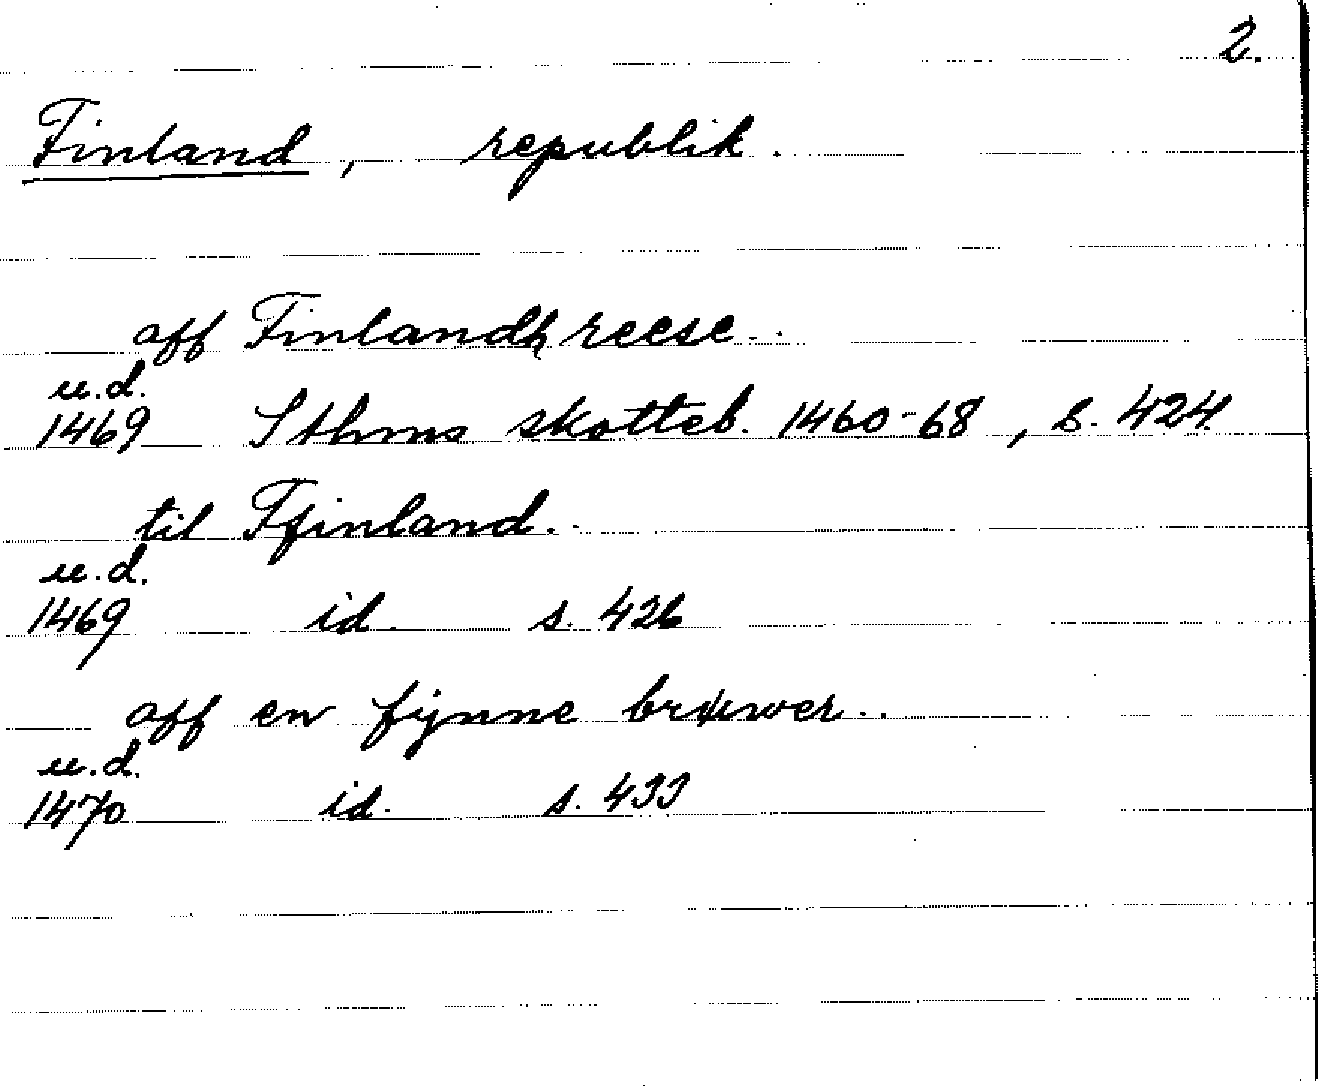 2.
Finland, republik.
aff Finlandh reese..
u.d.
1469 Sthms skotteb. 1460-68, s. 424.
til Ffinland..
u.d.
1469 id. s. 426
aff en fynne brwer..
u.d.
1470 id. s. 433